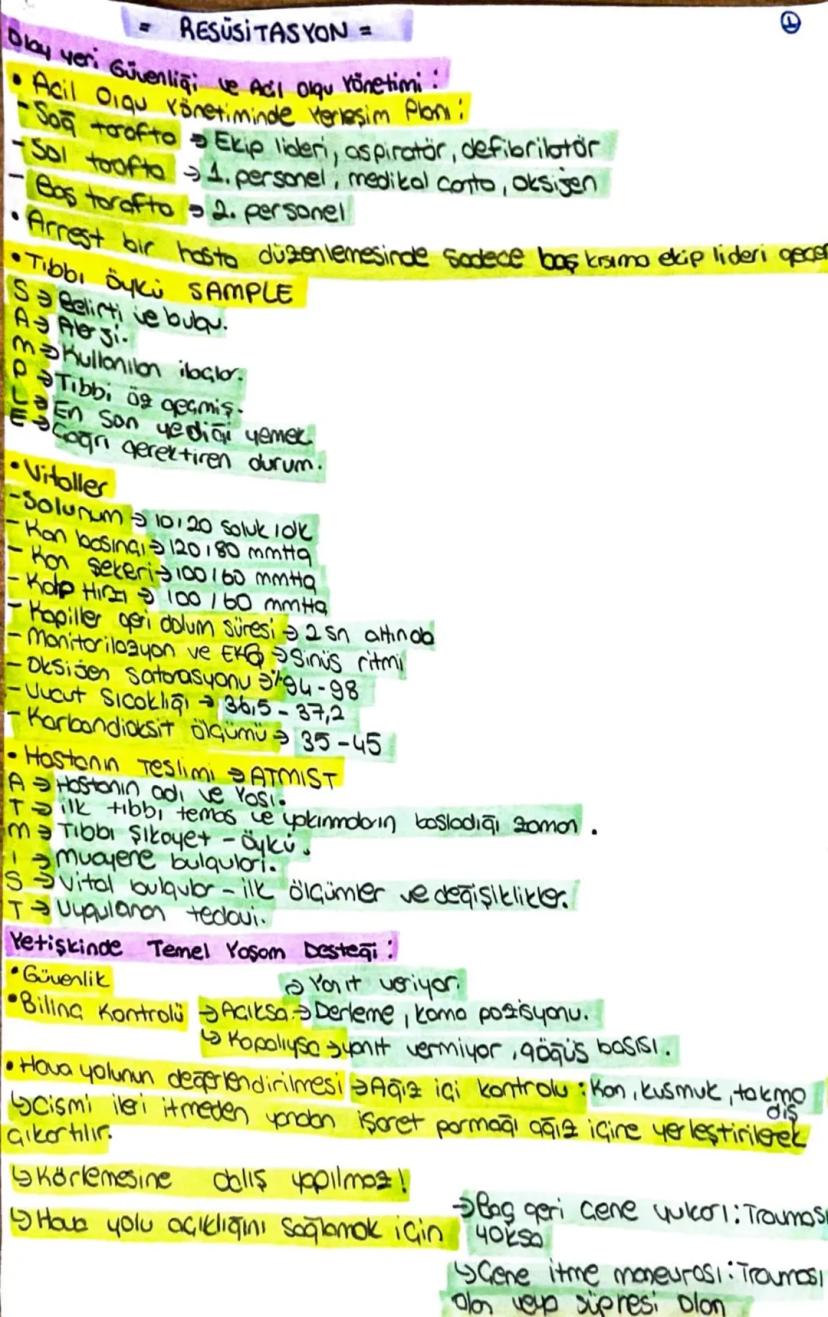 = RESÜSİTASYON =
1
Olay yeri Güvenliği ve Acil Olgu Yönetimi :
• Acil Olgu Yönetiminde Yerleşim Planı :
- Sağ tarafta → Ekip lideri, aspiratör, defibrilatör
- Sol tarafta → 1. personel, medikal çanta, oksijen
- Baş tarafta → 2. personel
• Arrest bir hasta düzenlemesinde sadece baş kısıma ekip lideri geçer
• Tıbbi öykü SAMPLE
S → Belirti ve bulgu.
A → Alerji.
M → Kullanılan ilaçlar.
P → Tıbbi öz geçmiş.
L → En son yediği yemek
E → Çağrı gerektiren durum.
• Vitaller
- Solunum → 10:20 soluk / dk
- Kan basıncı → 120 / 80 mmHg
- Kan şekeri → 100 / 60 mmHg
- Kalp Hızı → 100 / 60 mmHg
- Kapiller geri dolum süresi → 2 sn altında
- Monitorilazyon ve EKG → Sinüs ritmi
- Oksijen Satorasyonu → %94-98
- Vücut Sıcaklığı → 36,5 - 37,2
- Karbandioksit ölçümü → 35-45
• Hastanın Teslimi → ATMIST
A → Hastanın adı ve Yaşı.
T → ilk tıbbi temas ve yakınmaların başladığı zaman.
M → Tıbbi Şikayet - öykü.
I → Muayene bulguları.
S → Vital bulgular - ilk ölçümler ve değişiklikler.
T → Uygulanan tedavi.
Yetişkinde Temel Yaşam Desteği :
• Güvenlik
→ Yanıt veriyor.
• Bilinç Kontrolü → Açıksa → Derleme, koma pozisyonu.
↳ Kapalıysa → yanıt vermiyor, göğüs basısı.
• Hava yolunun değerlendirilmesi → Ağız içi kontrolu : Kan, kusmuk, takma diş
↳ Cismi ileri itmeden yandan işaret parmağı ağız içine yerleştirilerek
çıkartılır.
↳ Körlemesine dalış yapılmaz!
↳ Hava yolu açıklığını sağlamak için → Baş geri çene yukarı : Travması
yoksa
↳ Çene itme manevrası : Travması
olan veya şüpresi olan